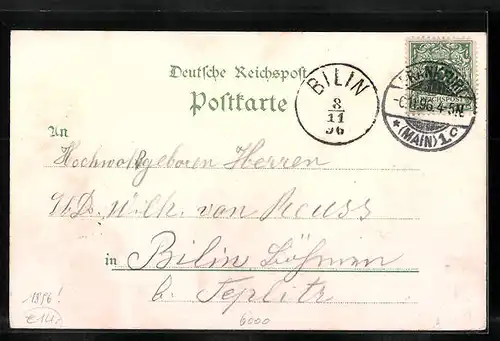 Deutsche Reichspost
Postkarte
BILIN
8
11
96
FRANKFURT
-6.11.96. 4-5N.
* (MAIN) 1
REICHSPOST
An
Hochwohlgeboren Herren
Wilh. von Reuss
in Bilin Böhmen
b. Teplitz
1896!
6000